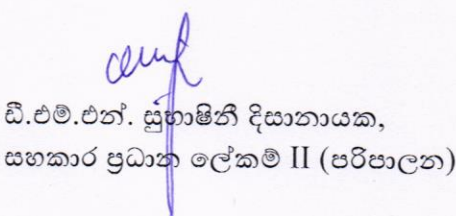 ඩී.එම්.එන්. සුභාෂිනී දිසානායක,
සහකාර ප්‍රධාන ලේකම් II (පරිපාලන)